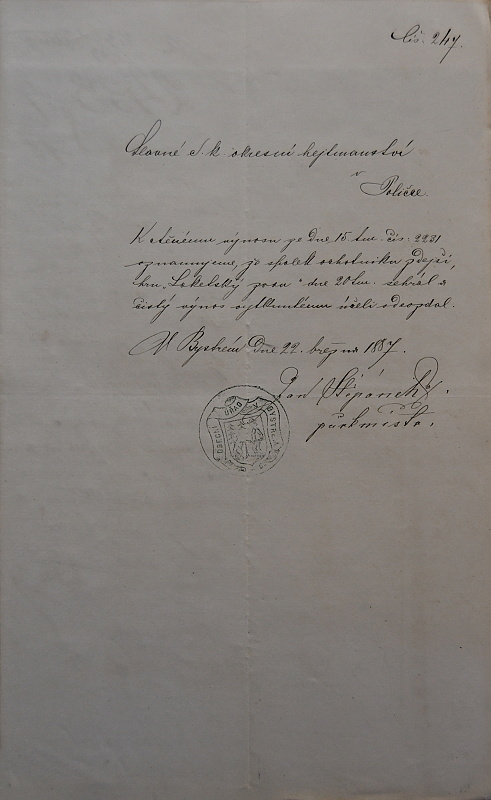 Čís. 247.
Slavné c. k. okresní hejtmanství
v
Poličce.
K ctěnému výnosu ze dne 15 t.m. čís. 2231
oznamujeme, že spolek ochotníků zdejší,
hru „Loketský zvon“ dne 20 t.m. sehrál a
čistý výnos vytknutému účeli odevzdal.
V Bystrém dne 22. března 1887.
Jan Štěpánek
purkmistr.
OBECNÍ ÚŘAD V BYSTRÉM